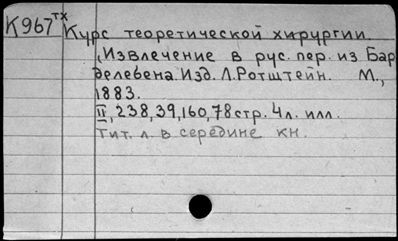 К967тх Курс теоретической хирургии.
(Извлечение в рус. пер. из Бар
делевена. Изд. Л. Ротштейн. М.,
1883.
II, 238, 39, 160, 78 стр. 4 л. илл.
Тит. л. в середине кн.